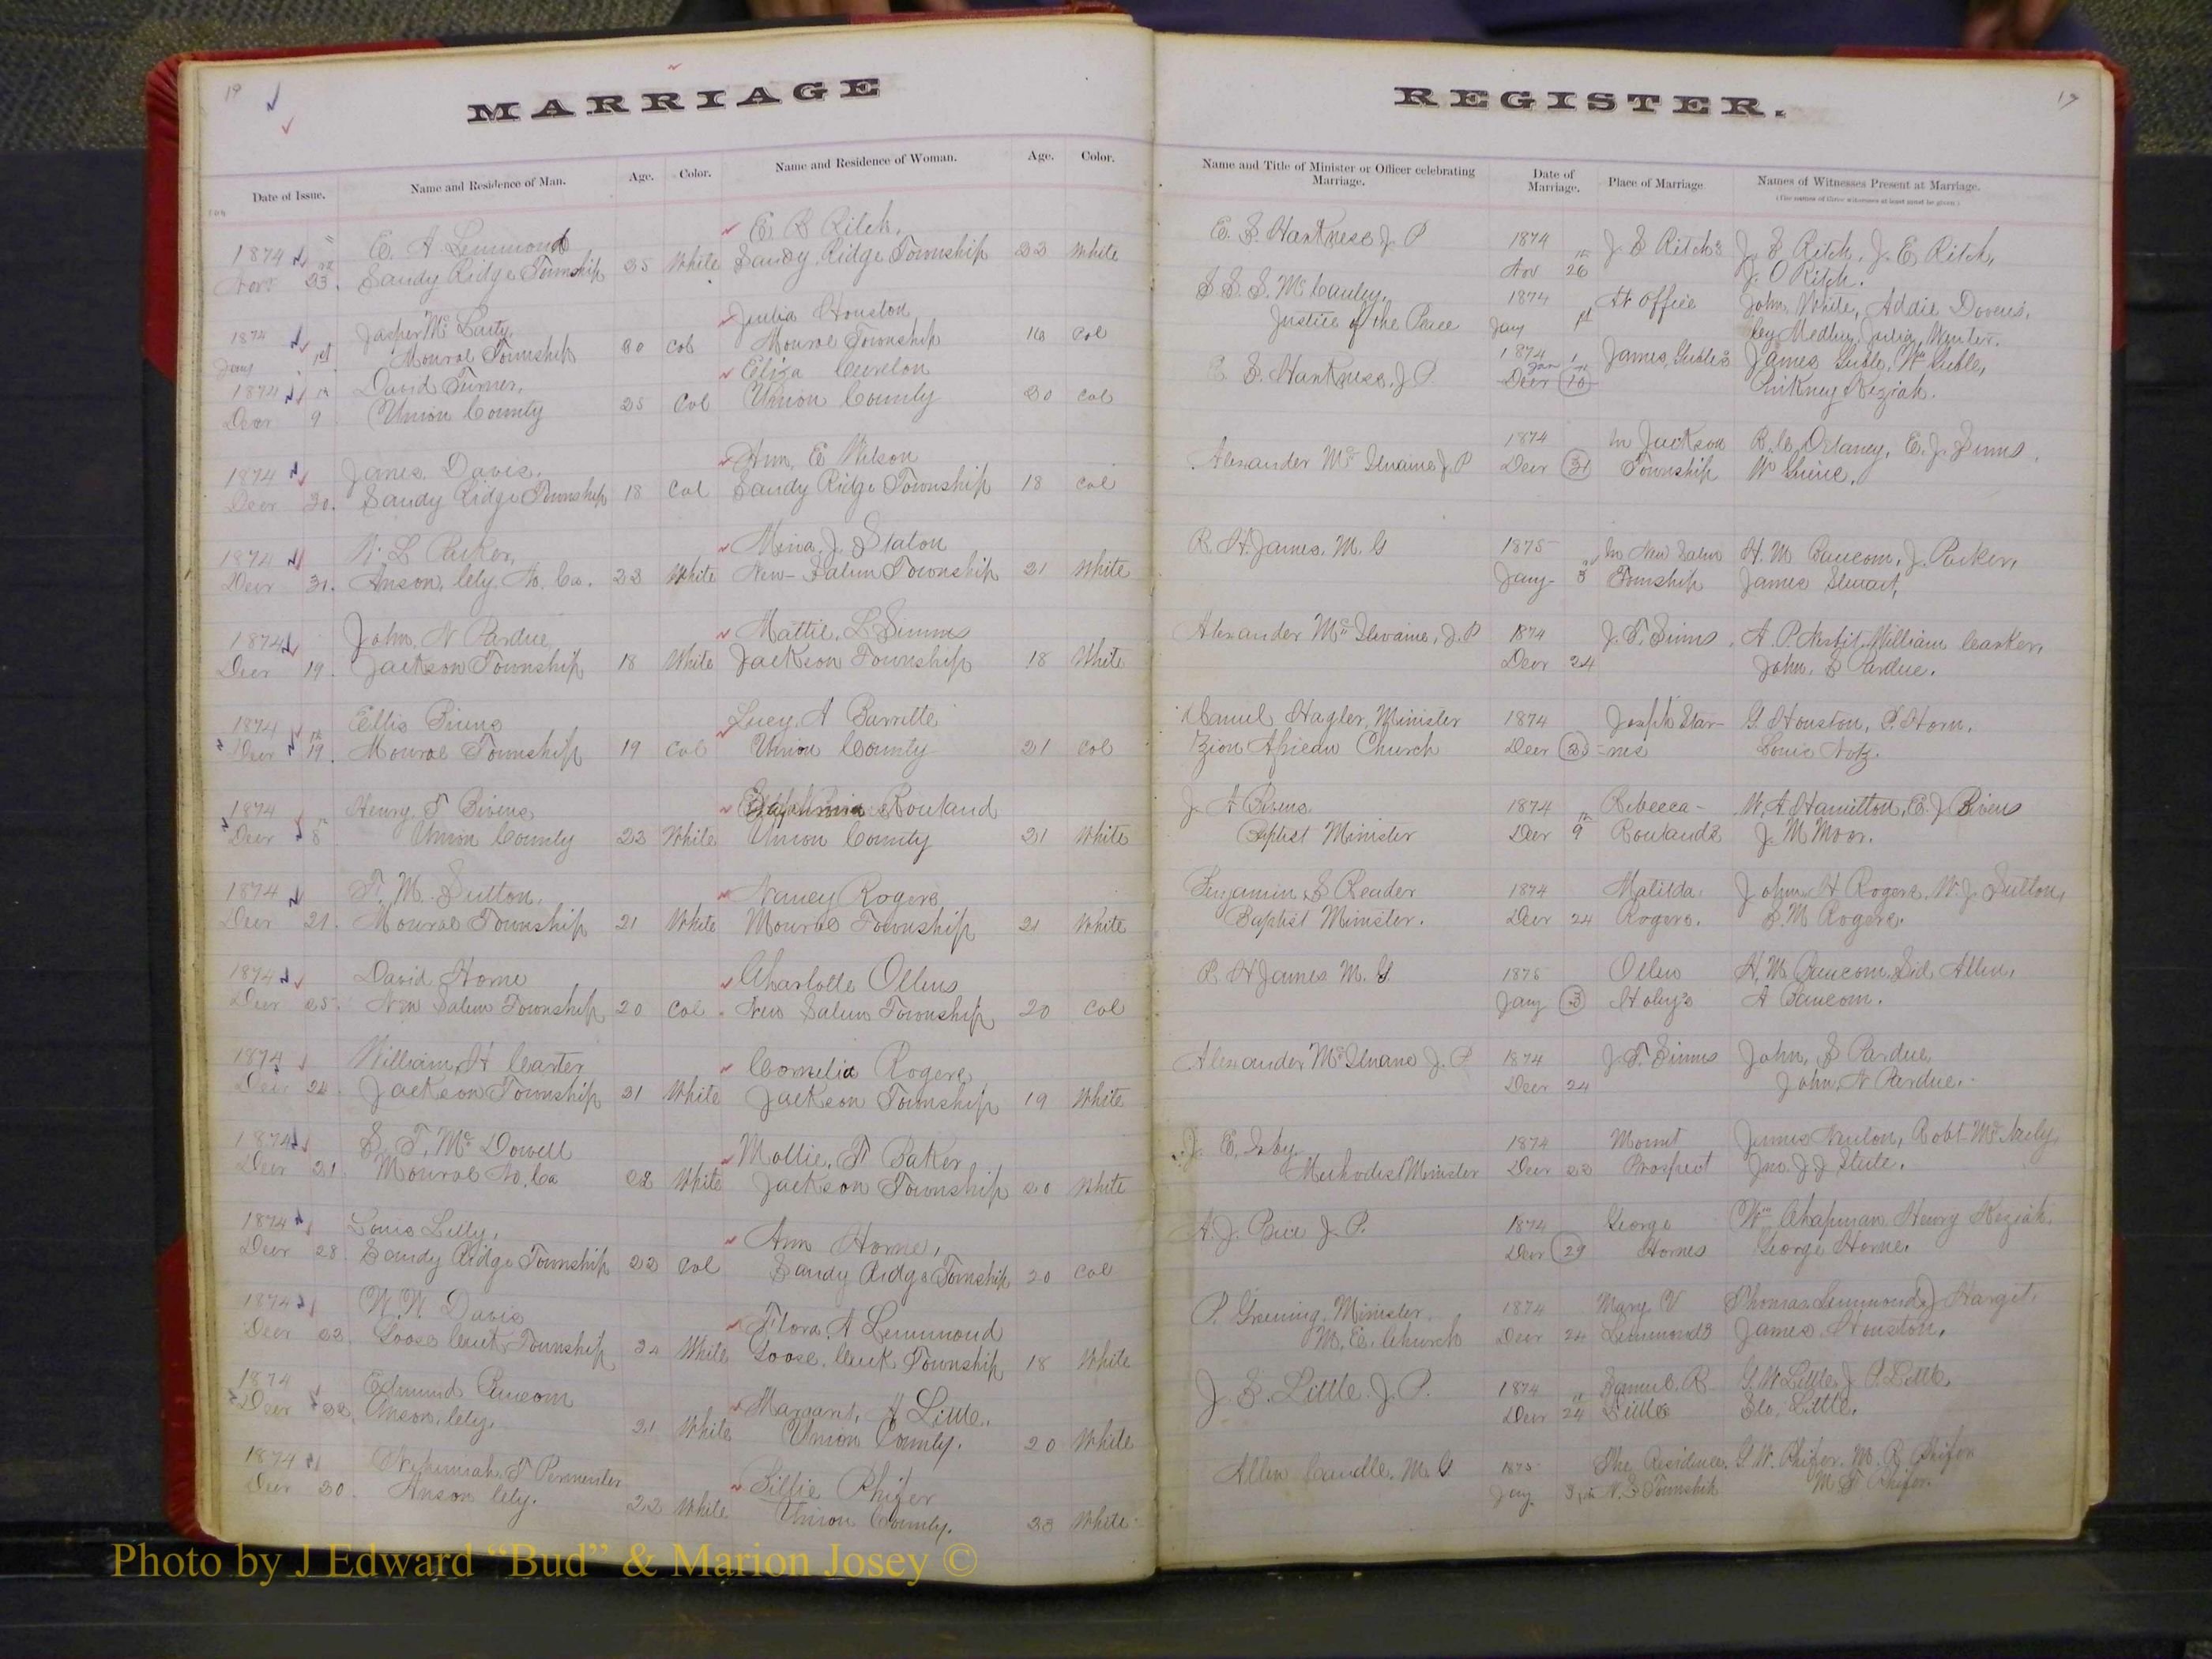 19
MARRIAGE
Date of Issue. Name and Residence of Man. Age. Color. Name and Residence of Woman. Age. Color.
1874 E. A Lemmond E R Ritch,
Nov 23. Sandy Ridge Township 35 White Sandy Ridge Township 23 White
1874 Jasper Mc Julia Houston,
Jany 1st Monroe Township 30 Col Monroe Township Col
1874 David Turner, Eliza Cureton
Decr 9 Union County 25 Col Union County 20 Col
1874 James Davis, Ann, E Wilson
Decr 30. Sandy Ridge Township 18 Col Sandy Ridge Township 18 Col
1874 Parker, J. Staton
Decr 31. Anson, No. Ca. 23 White New-Salem Township 21 White
1874 John, N Pardue Mattie, L Simms
Decr 19. Jackson Township 18 White Jackson Township 18 White
1874 Ellis Lucy, A Barrette
Decr 19. Monroe Township 19 Col Union County 21 Col
1874 Henry T Bivens Rowland
Decr 8 Union County 23 White Union County 21 White
1874 T. M. Sutton. Nancy Rogers
Decr 21. Monroe Township 21 White Monroe Township 21 White
1874 David Horne Charlotte Ollens
Decr 25. New Salem Township 20 Col. New Salem Township 20 Col
1874 William H Carter Cornelia Rogers
Decr 24. Jackson Township 21 White Jackson Township 19 White
1874 S. T. Mc Dowell Mollie, F Baker
Decr 21. Monroe No. Ca 22 White Jackson Township 20 White
1874 Louis Lilly, Ann Horne,
Decr 28. Sandy Ridge Township 22 Col Sandy Ridge Township 20 Col
1874 W. W. Davis Flora, A Lemmond
Decr 23. Goose Creek Township 24 White Goose Creek Township 18 White
1874 Edmund Baucom Margaret, A Little.
Decr 22 Anson 21 White Union County. 20 White
1874 T Permenter Phifer
Decr 30. Anson 22 White Union County. 23 White
REGISTER.
Name and Title of Minister or Officer celebrating Marriage. Date of Marriage. Place of Marriage Names of Witnesses Present at Marriage.
(The names of three witnesses at least must be given.)
E. S. Harkness J. P 1874 J. S Ritch's J. S Ritch, J. E Ritch,
Nov 26th J. O Ritch.
S. S. S. McCauley, 1874 At office John, White, Addie
Justice of the Peace Jany 1st
E. S. Harkness, J P. 1874 James
Decr 10 Keziah.
Alexander Mc Ilwaine J. P 1874 In Jackson Delaney, E. J. Simms,
Decr 31 Township
R. H. James, M. G 1875 In New Salem H. M Baucom, J. Parker,
Jany 3 Township James Stewart,
Alexander Mc Ilwaine, J. P 1874 J. T. Simms, William
Decr 24 John, S Pardue.
Hagler, Minister 1874 Joseph Star- G. Houston,
Zion African Church Decr -nes
J A Bivens 1874 Rebecca- W. A Hamilton, E. J Bivens
Baptist Minister Decr 9th Rowlands J. M Moor.
Benjamin, S Reader 1874 Matilda. John H Rogers, W. J. Sutton,
Baptist Minister. Decr 24 Rogers. M Rogers.
R. H James. M. G 1875 Ollen H. M Baucom, Sid Allen,
Jany 3 A Baucom.
Alexander Mc Ilwane J. P 1874 J. T. Simms John, S Pardue,
Decr 24 John, N Pardue.
J. E. 1874 Mount James Robt Mc Neely
Methodist Minister Decr Prospect Jno. J. J
A. J. Price J. P. 1874 George Wm Chapman Henry Keziah.
Decr 29 Hornes George Horne.
P. Greening, Minister, 1874 Mary V Thomas Lemmond, J Harget.
M. E. Church Decr 24 Lemmonds James. Houston.
J. S. Little. J. P. 1874 Samuel. R G. W Little, J. P. Little,
Decr 24 Littles Little.
Allen Caudle. M. G 1875 The Residence. G. W. Phifer. M. R Phifer
Jany 3 Township Phifer.
Photo by J Edward “Bud” & Marion Josey ©